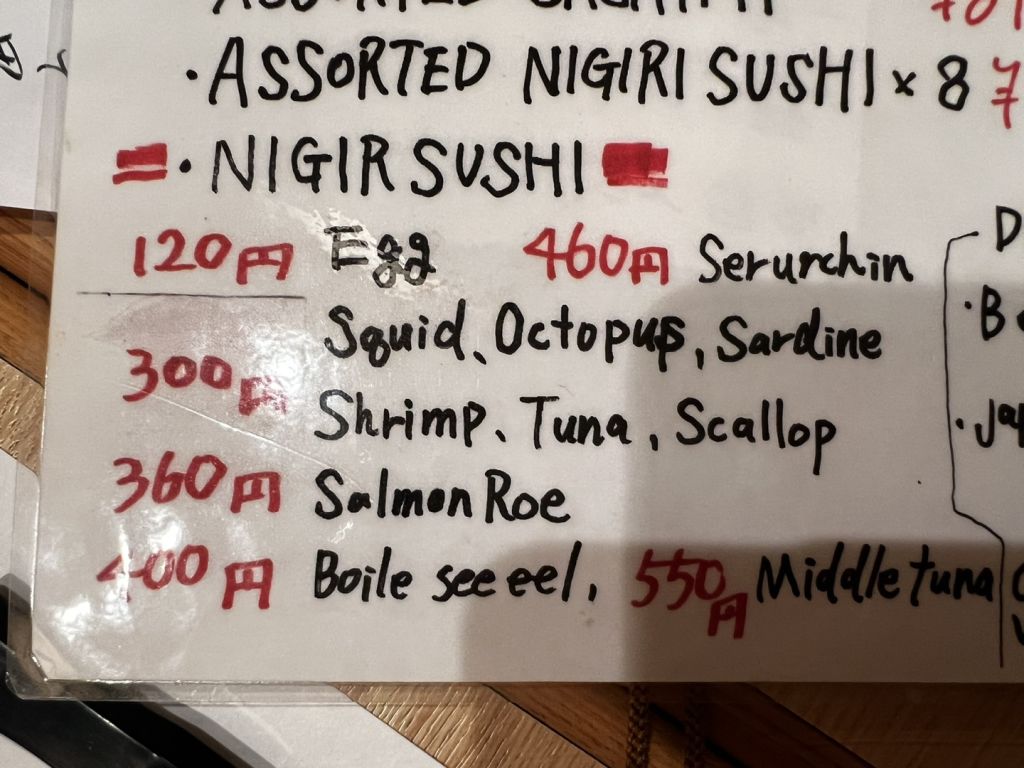 ASSORTED
・ASSORTED NIGIRI SUSHI × 8
・NIGIR SUSHI
120円 Egg 460円 Serurchin
Squid、Octopus, Sardine
300円
Shrimp、Tuna, Scallop
360円 Salmon Roe
400円 Boile see eel, 550円 Middle tuna